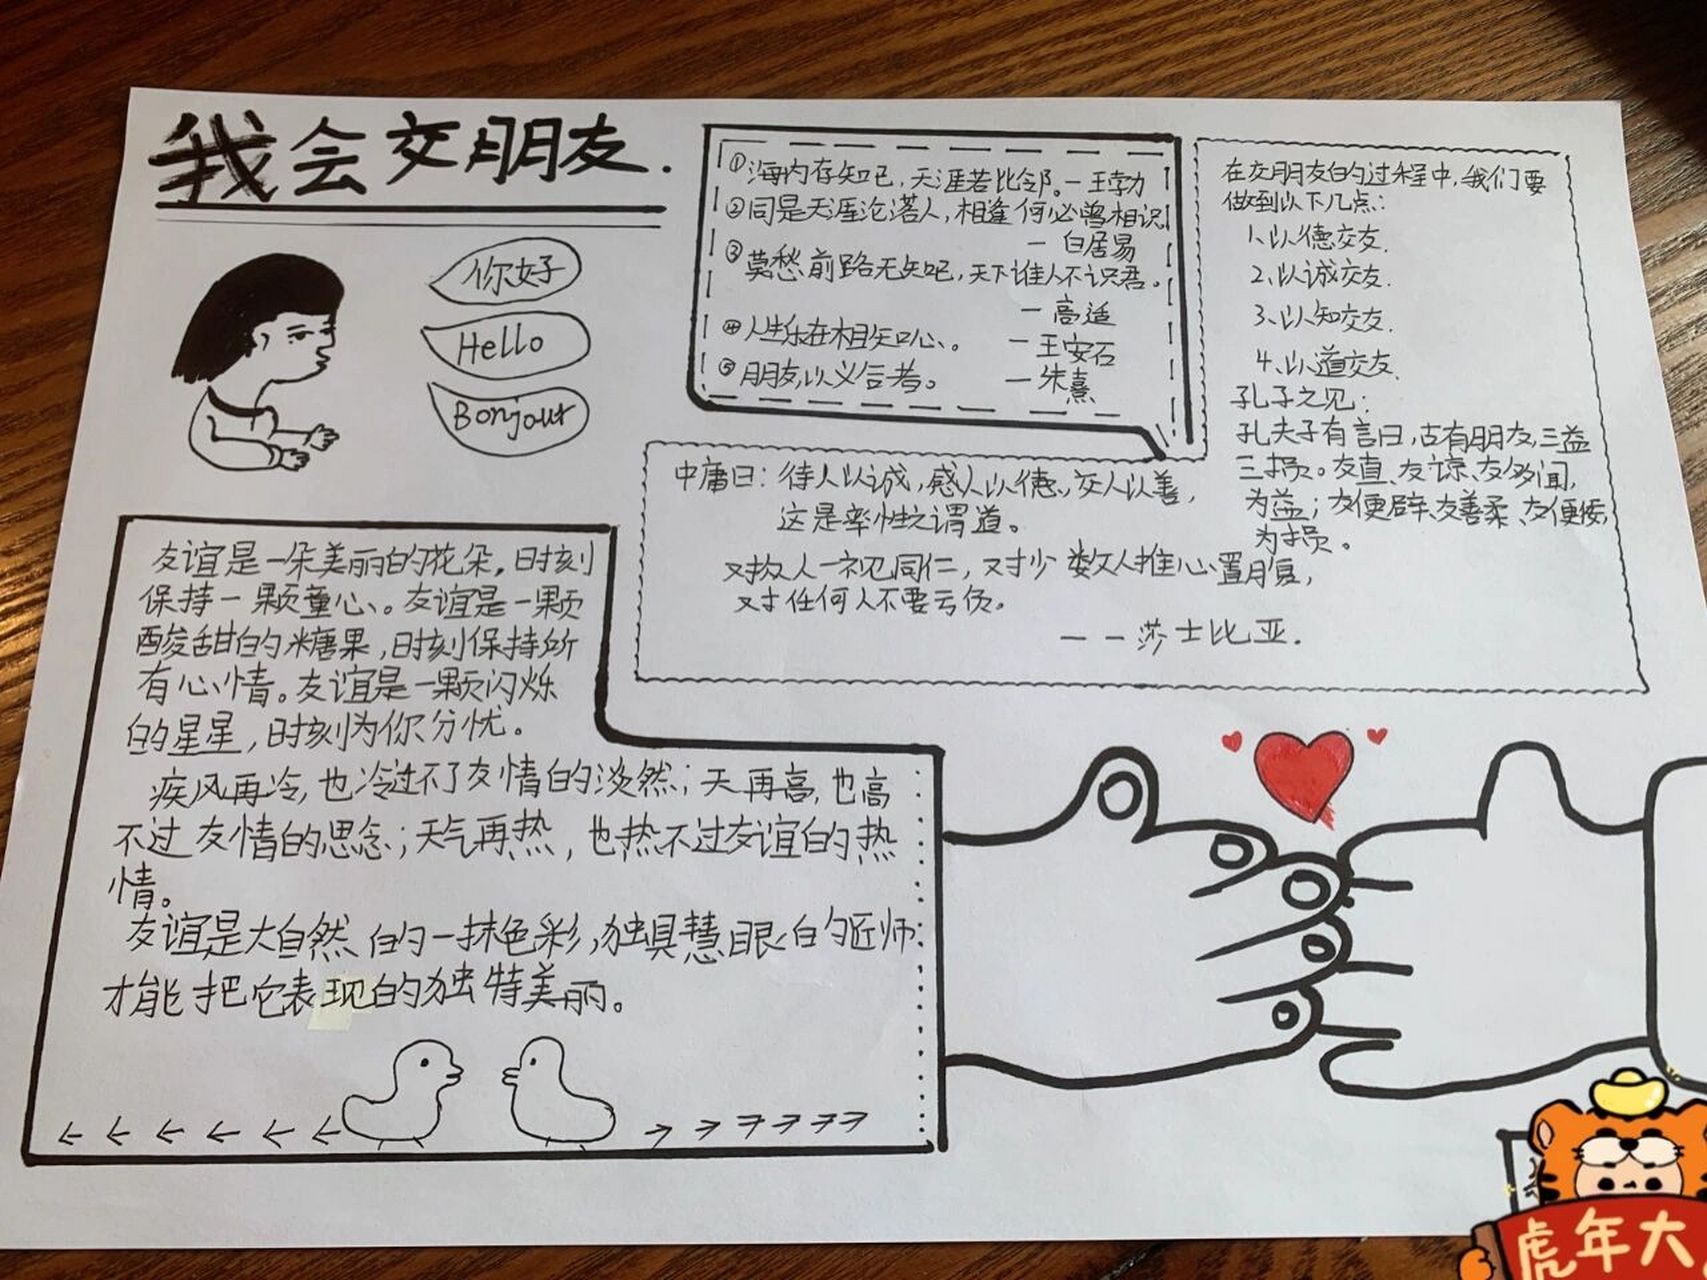 我会交朋友.
你好
Hello
Bonjour
①海内存知己,天涯若比邻。—王勃
②同是天涯沦落人,相逢何必曾相识
—白居易
③莫愁前路无知己,天下谁人不识君。
—高适
④人生乐在相知心。
—王安石
⑤朋友,以义合者。
—朱熹
在交朋友的过程中,我们要
做到以下几点:
1、以德交友.
2、以诚交友.
3、以知交友.
4、以道交友.
孔子之见:
孔夫子有言曰,古有朋友,三益
三损。友直、友谅、友多闻,
为益;友便辟、友善柔、友便佞,
为损。
中庸曰:待人以诚,感人以德,交人以善,
这是率性之谓道。
对故人一视同仁,对少数人推心置腹,
对任何人不要亏负。
——莎士比亚.
友谊是一朵美丽的花朵,时刻
保持一颗童心。友谊是一颗
酸甜的糖果,时刻保持所
有心情。友谊是一颗闪烁
的星星,时刻为你分忧。
疾风再冷,也冷过不了友情的淡然;天再高,也高
不过友情的思念;天气再热,也热不过友谊的热
情。
友谊是大自然的一抹色彩,独具慧眼的匠师
才能把它表现的独特美丽。
虎年大